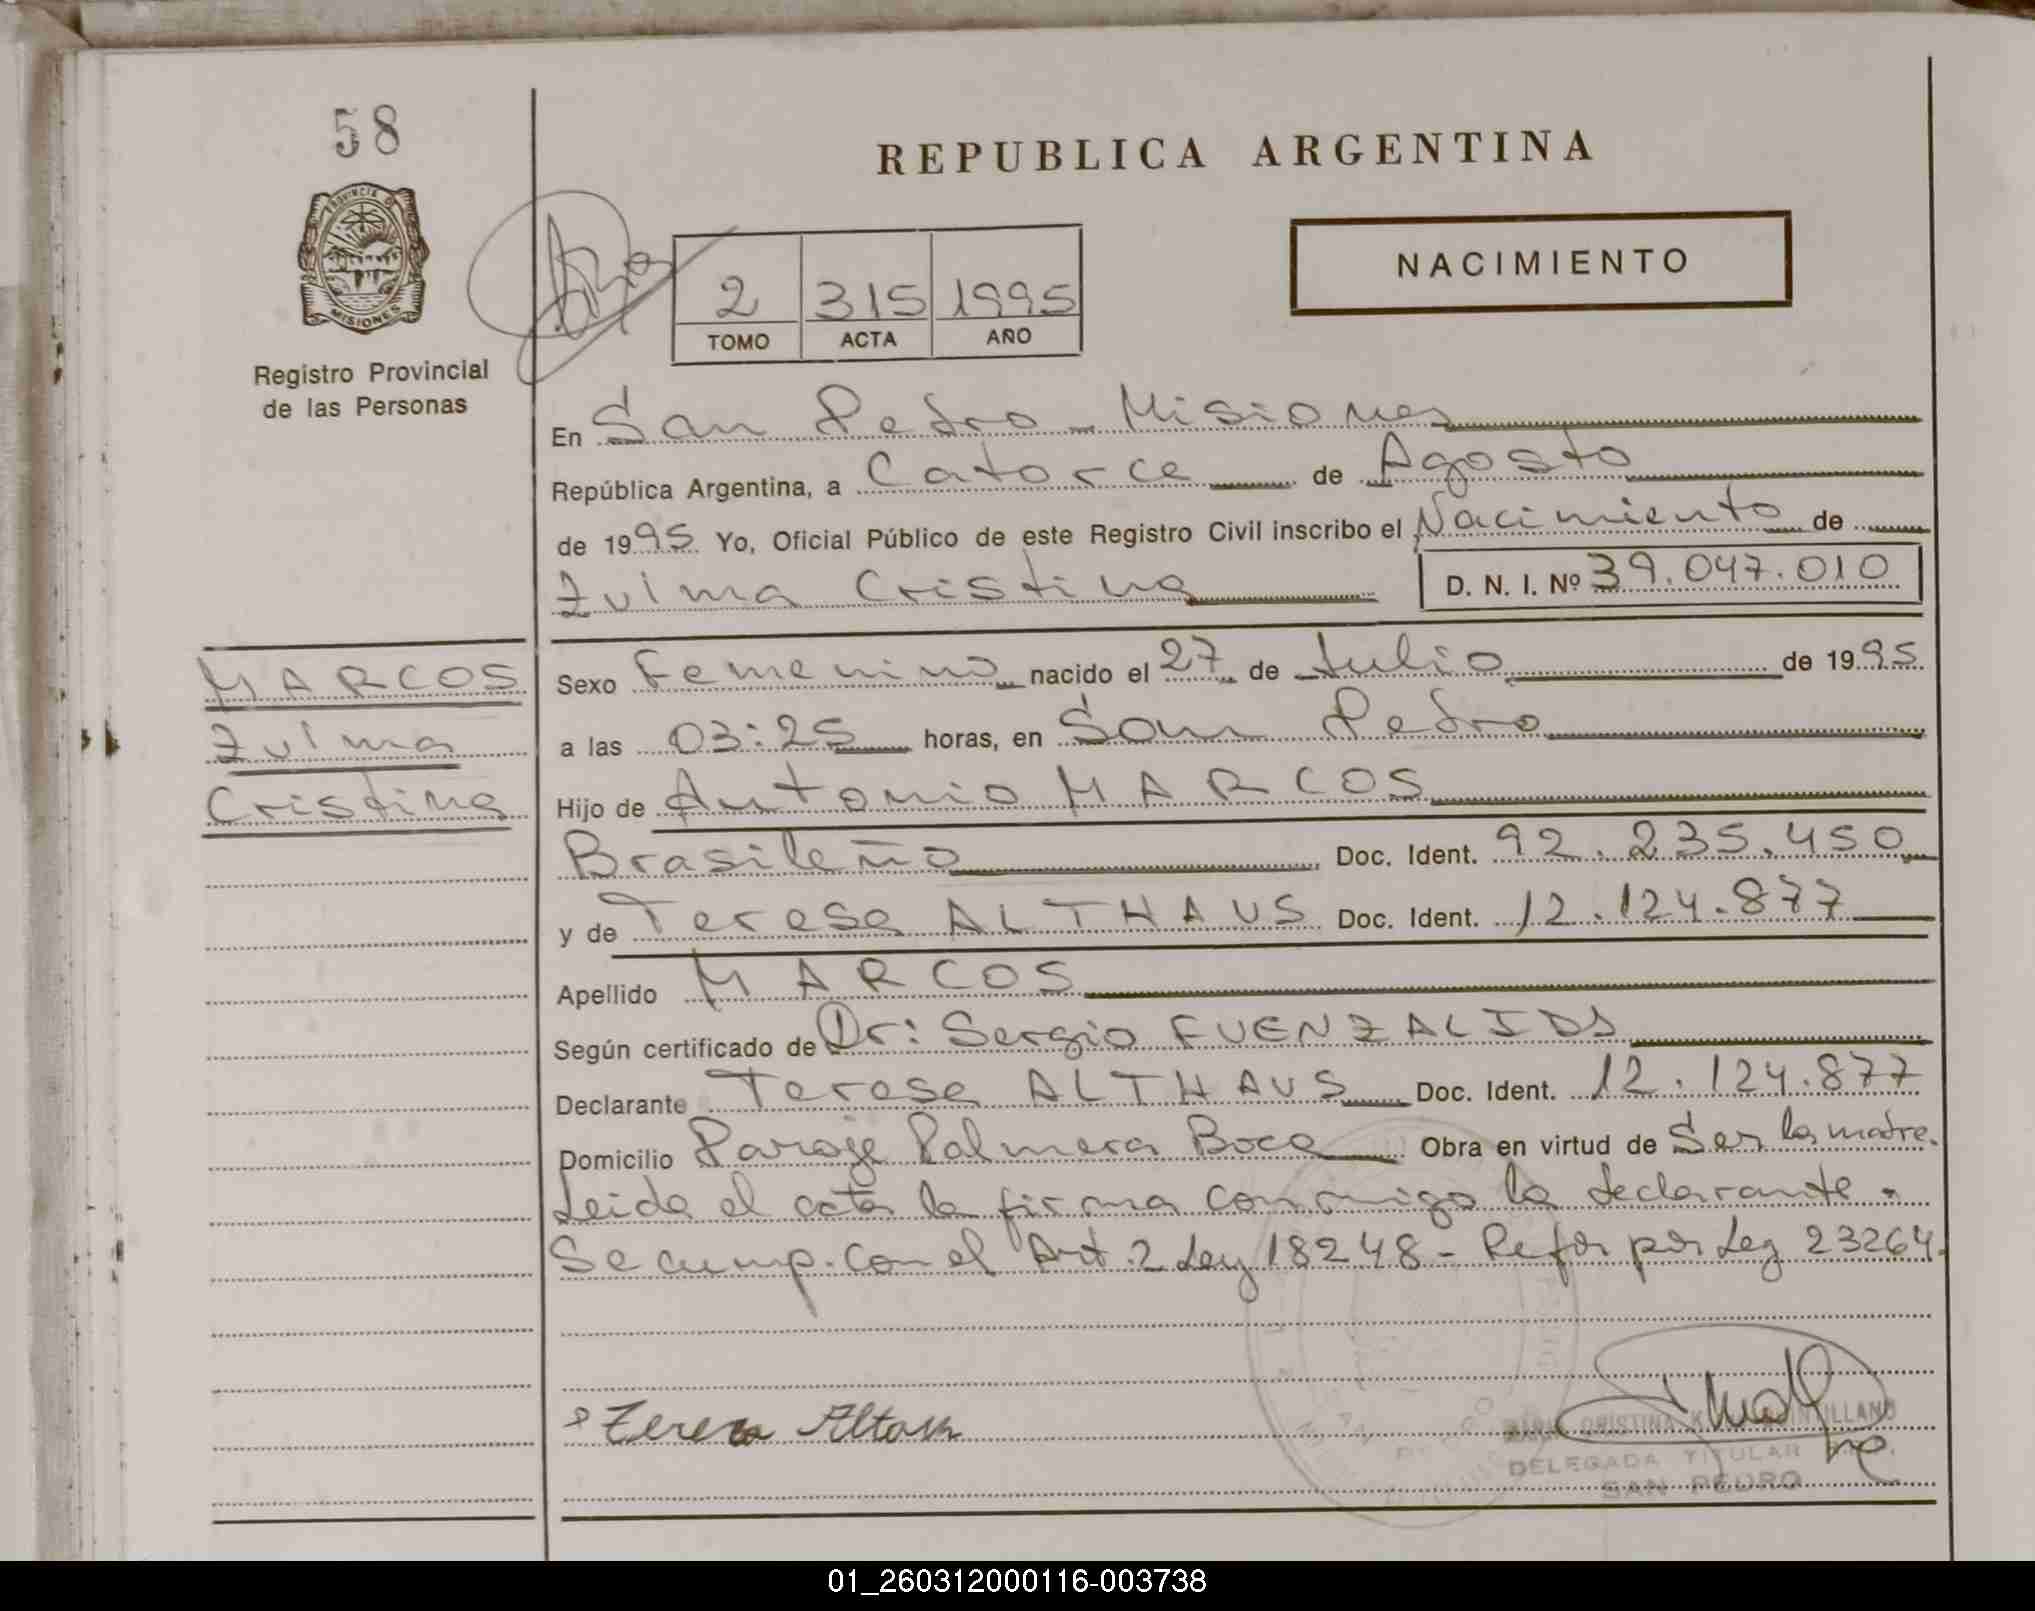 58
REPUBLICA ARGENTINA
PROVINCIA DE
MISIONES
Registro Provincial
de las Personas
2 315 1995
TOMO ACTA AÑO
NACIMIENTO
En San Pedro - Misiones
República Argentina, a Catorce de Agosto
de 1995 Yo, Oficial Público de este Registro Civil inscribo el Nacimiento de
Zulma Cristina D. N. I. Nº 39.047.010
MARCOS
Zulma
Cristina
Sexo Femenino nacido el 27 de Julio de 1995
a las 03:25 horas, en San Pedro
Hijo de Antonio MARCOS
Brasileño Doc. Ident. 92.235.450
y de Teresa ALTHAUS Doc. Ident. 12.124.877
Apellido MARCOS
Según certificado de Dr: Sergio FUENZALIDA
Declarante Teresa ALTHAUS Doc. Ident. 12.124.877
Domicilio Paraje Palmera Boca Obra en virtud de Ser la madre.
Leida el acta la firma conmigo la declarante.
Se cump. con el Art. 2 Ley 18248 - Refor por Ley 23264.
Terera Altaus
CRISTINA K. QUINTILLAN
DELEGADA TITULAR
SAN PEDRO
01_260312000116-003738